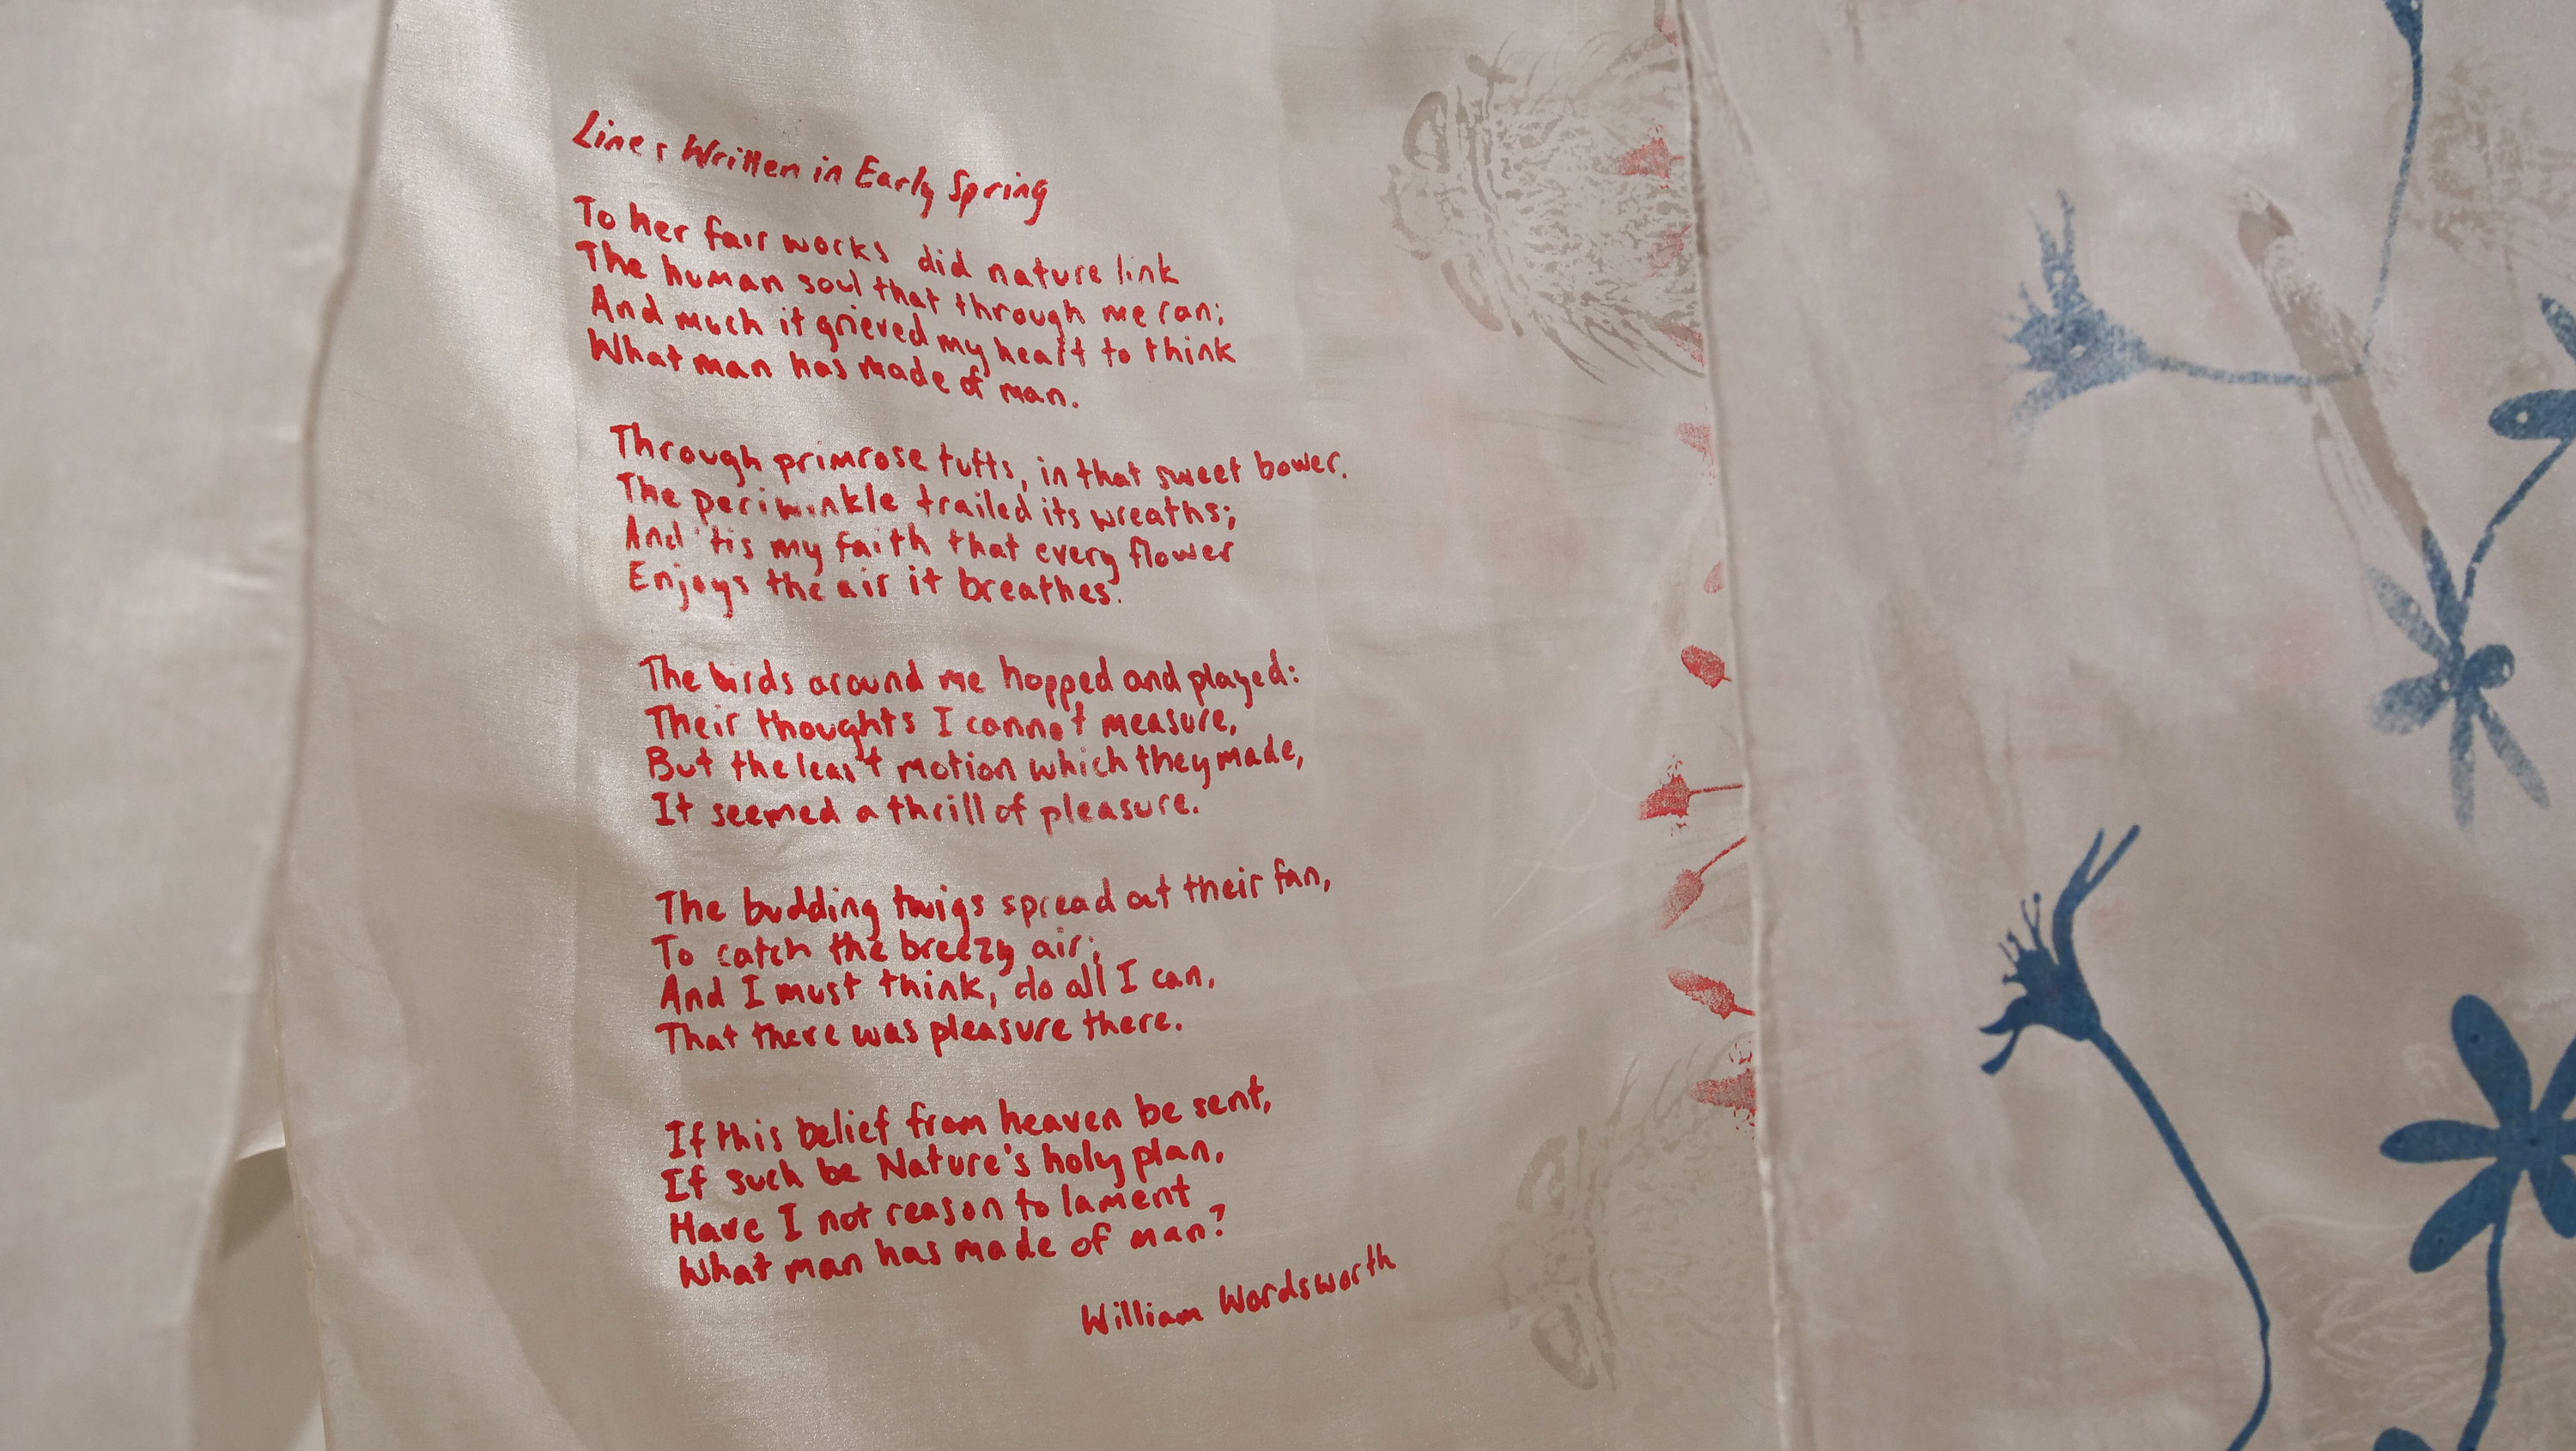 Lines Written in Early Spring
To her fair works did nature link
The human soul that through me ran;
And much it grieved my heart to think
What man has made of man.
Through primrose tufts, in that sweet bower.
The periwinkle trailed its wreaths;
And 'tis my faith that every flower
Enjoys the air it breathes.
The birds around me hopped and played:
Their thoughts I cannot measure,
But the least motion which they made,
It seemed a thrill of pleasure.
The budding twigs spread out their fan,
To catch the breezy air;
And I must think, do all I can,
That there was pleasure there.
If this belief from heaven be sent,
If such be Nature's holy plan,
Have I not reason to lament
What man has made of man?
William Wordsworth